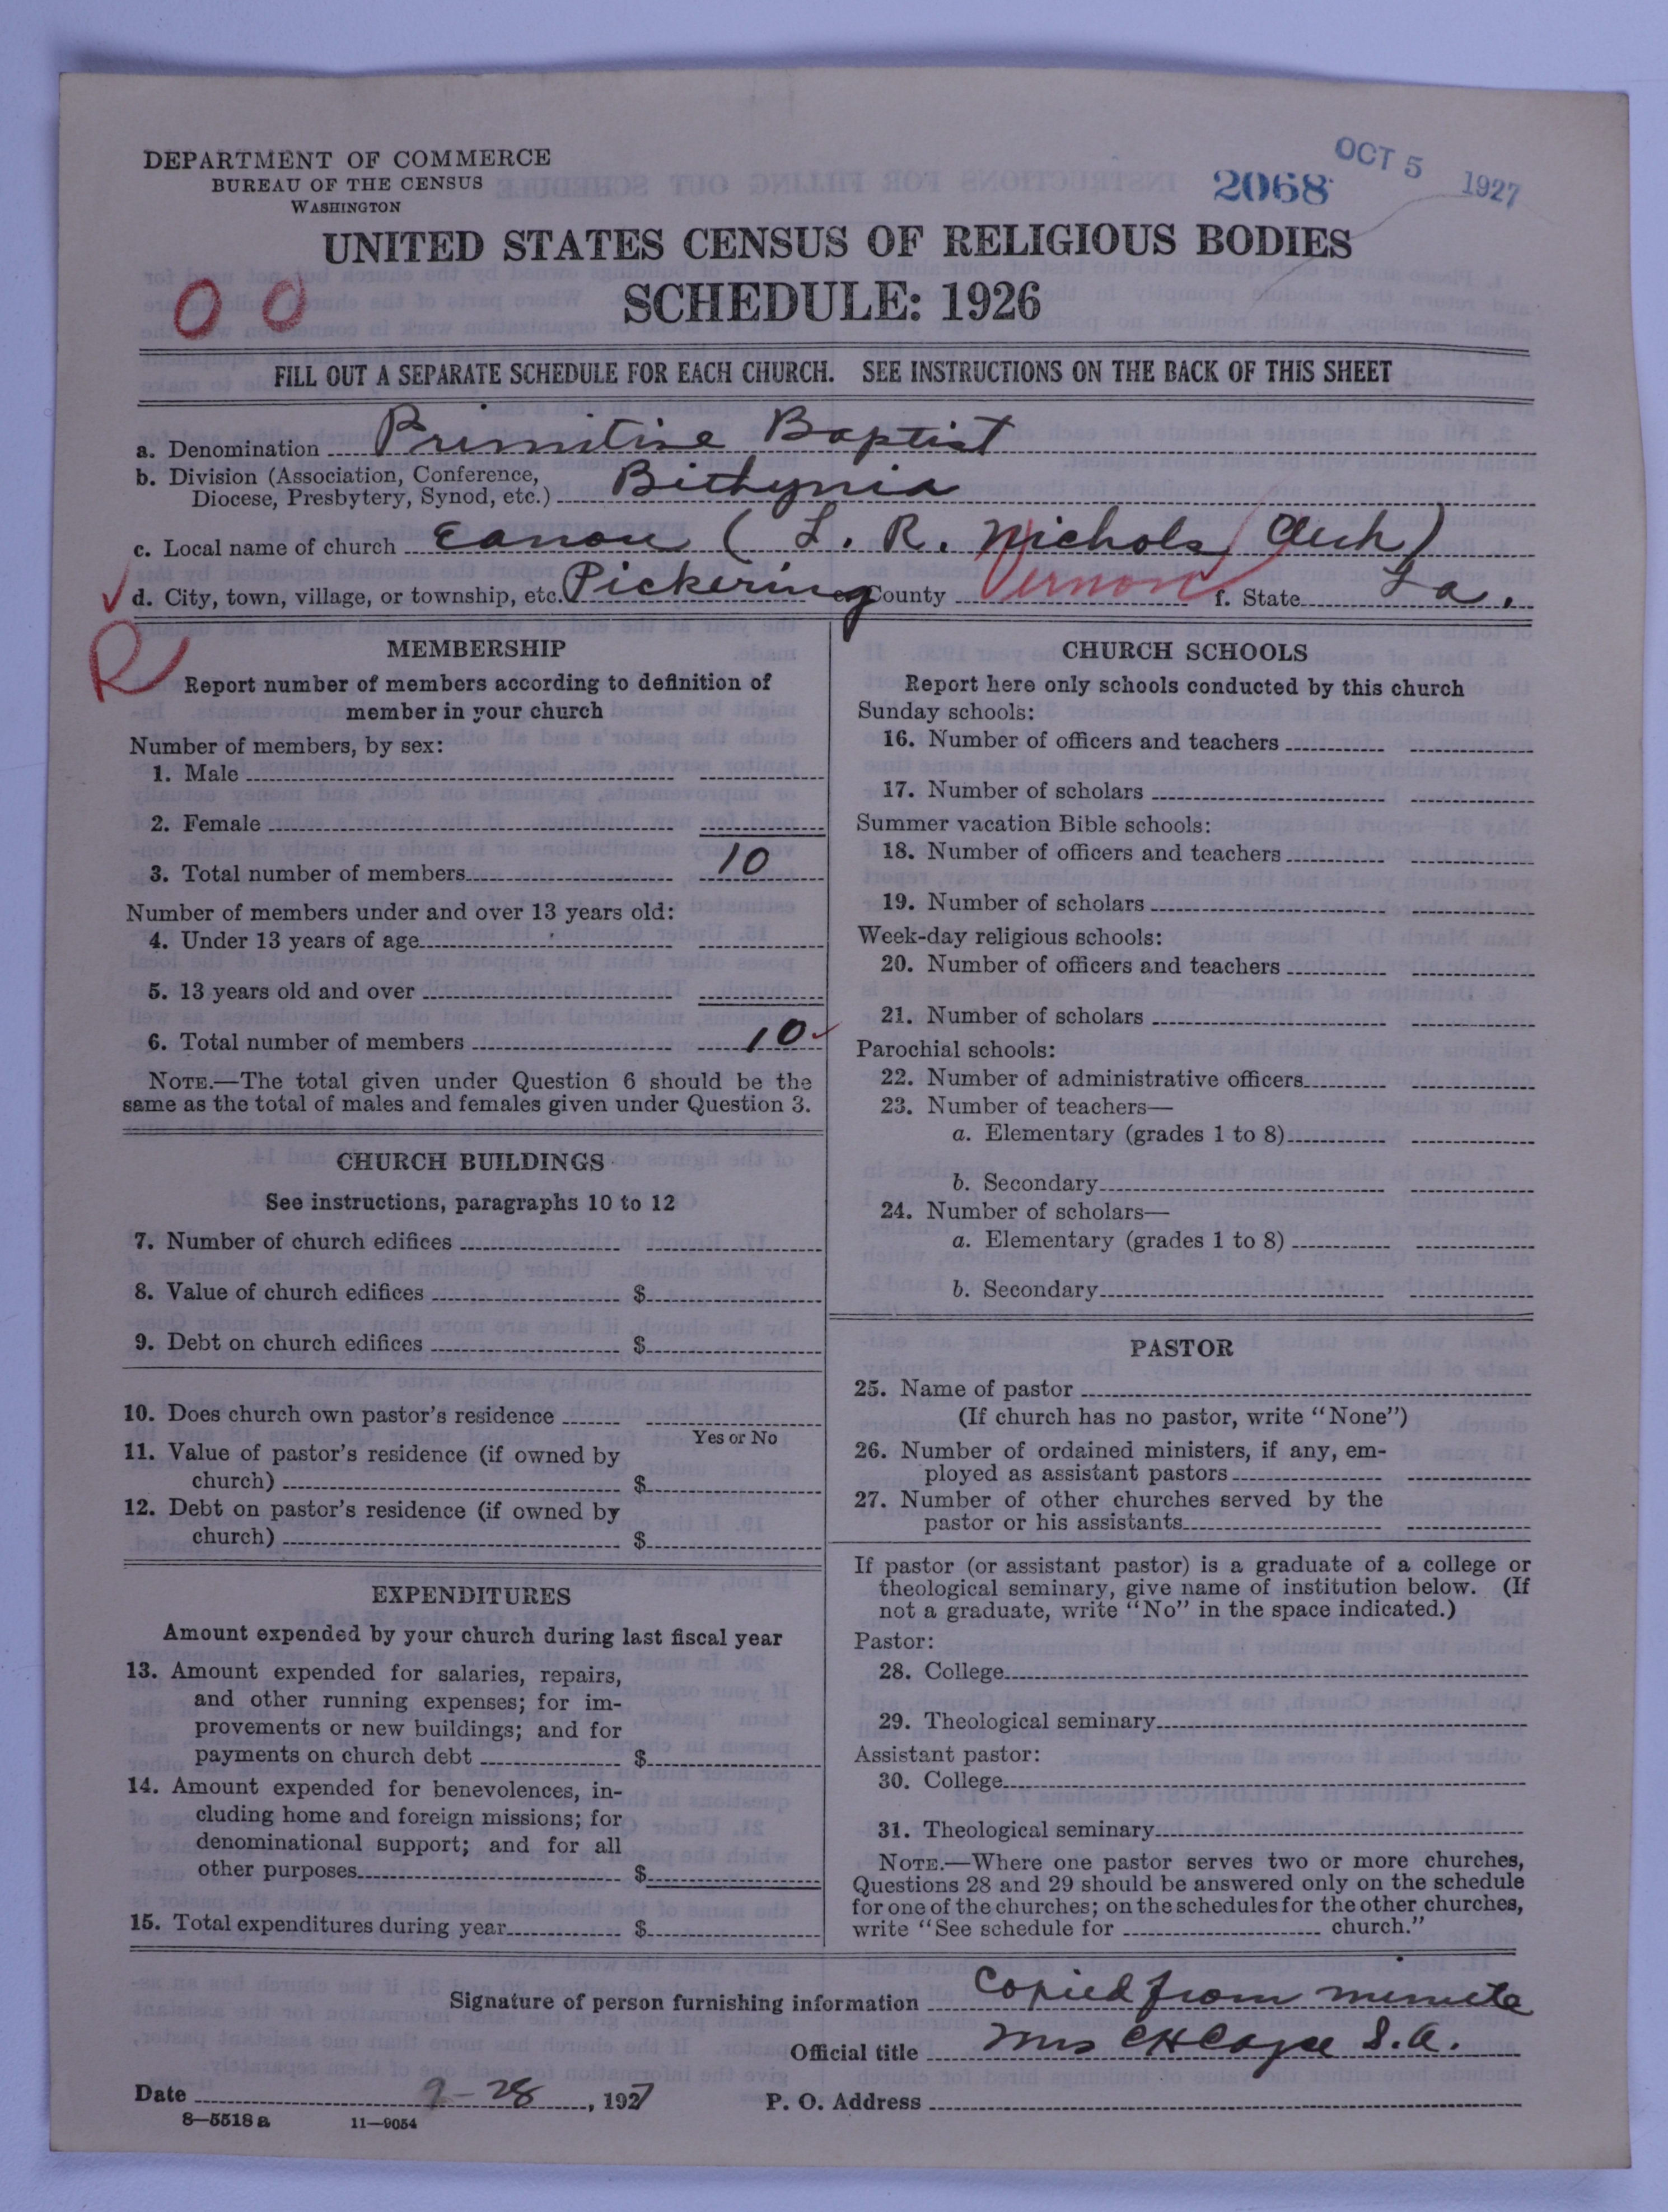 DEPARTMENT OF COMMERCE
BUREAU OF THE CENSUS
WASHINGTON
2068
OCT 5 1927
UNITED STATES CENSUS OF RELIGIOUS BODIES
SCHEDULE: 1926
0 0
FILL OUT A SEPARATE SCHEDULE FOR EACH CHURCH. SEE INSTRUCTIONS ON THE BACK OF THIS SHEET
a. Denomination Primitive Baptist
b. Division (Association, Conference,
Diocese, Presbytery, Synod, etc.) Bithynia
c. Local name of church (L. R. Nichols, Clerk)
d. City, town, village, or township, etc. Pickering County Vernon f. State La.
R
MEMBERSHIP
Report number of members according to definition of
member in your church
Number of members, by sex:
1. Male
2. Female
3. Total number of members 10
Number of members under and over 13 years old:
4. Under 13 years of age
5. 13 years old and over
6. Total number of members 10
NOTE.—The total given under Question 6 should be the
same as the total of males and females given under Question 3.
CHURCH BUILDINGS
See instructions, paragraphs 10 to 12
7. Number of church edifices
8. Value of church edifices $
9. Debt on church edifices $
10. Does church own pastor's residence
Yes or No
11. Value of pastor's residence (if owned by
church) $
12. Debt on pastor's residence (if owned by
church) $
EXPENDITURES
Amount expended by your church during last fiscal year
13. Amount expended for salaries, repairs,
and other running expenses; for im-
provements or new buildings; and for
payments on church debt $
14. Amount expended for benevolences, in-
cluding home and foreign missions; for
denominational support; and for all
other purposes $
15. Total expenditures during year $
CHURCH SCHOOLS
Report here only schools conducted by this church
Sunday schools:
16. Number of officers and teachers
17. Number of scholars
Summer vacation Bible schools:
18. Number of officers and teachers
19. Number of scholars
Week-day religious schools:
20. Number of officers and teachers
21. Number of scholars
Parochial schools:
22. Number of administrative officers
23. Number of teachers—
a. Elementary (grades 1 to 8)
b. Secondary
24. Number of scholars—
a. Elementary (grades 1 to 8)
b. Secondary
PASTOR
25. Name of pastor
(If church has no pastor, write "None")
26. Number of ordained ministers, if any, em-
ployed as assistant pastors
27. Number of other churches served by the
pastor or his assistants
If pastor (or assistant pastor) is a graduate of a college or
theological seminary, give name of institution below. (If
not a graduate, write "No" in the space indicated.)
Pastor:
28. College
29. Theological seminary
Assistant pastor:
30. College
31. Theological seminary
NOTE.—Where one pastor serves two or more churches,
Questions 28 and 29 should be answered only on the schedule
for one of the churches; on the schedules for the other churches,
write "See schedule for church."
Signature of person furnishing information Copied from minute
Official title Mrs S.A.
Date 9-28, 1927 P. O. Address
8—5518 a 11—9054